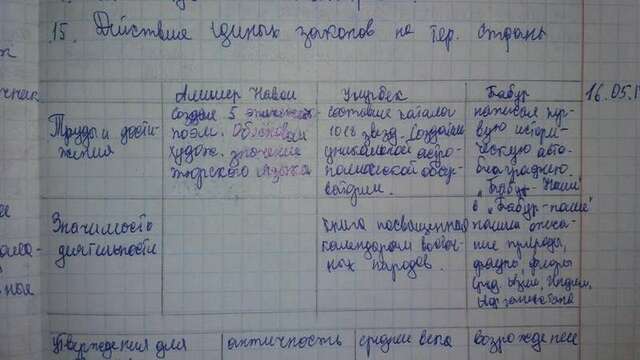 15. Действие единых законов на тер. страны
Алишер Навои Улугбек Бабур 16.05.
Труды и дости-
жения
Создал 5
поэм. Обосновал
худож. значение
тюркского языка
составил каталог
1018 звезд. Создатель
уникальной астро-
номической обсер-
ватории.
написал пер-
вую истори-
ческую авто-
биографию.
"Бабур-Наме"
Значимость
деятельности
книга посвященная
календарям восточ-
ных народов.
в "Бабур-наме"
описа-
ние природы,
фауны, флоры
Сред. Азии, Индии,
Афганистана
Утверждения для античность средние века возрождение